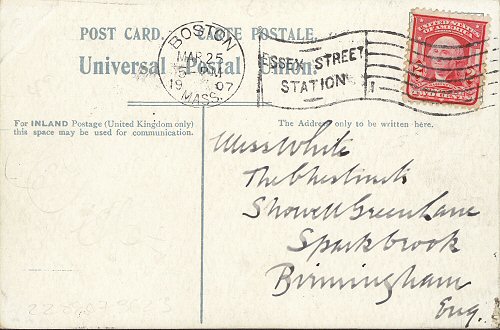 POST CARD. CARTE POSTALE.
Universal Postal Union.
BOSTON
MAR 25
PM
1907
MASS.
ESSEX STREET
STATION
UNITED STATES OF AMERICA
TWO CENTS
For INLAND Postage (United Kingdom only)
this space may be used for communication.
The Address only to be written here.
Miss White
The Chestnuts
Showell Green Lane
Sparkbrook
Birmingham
Eng.